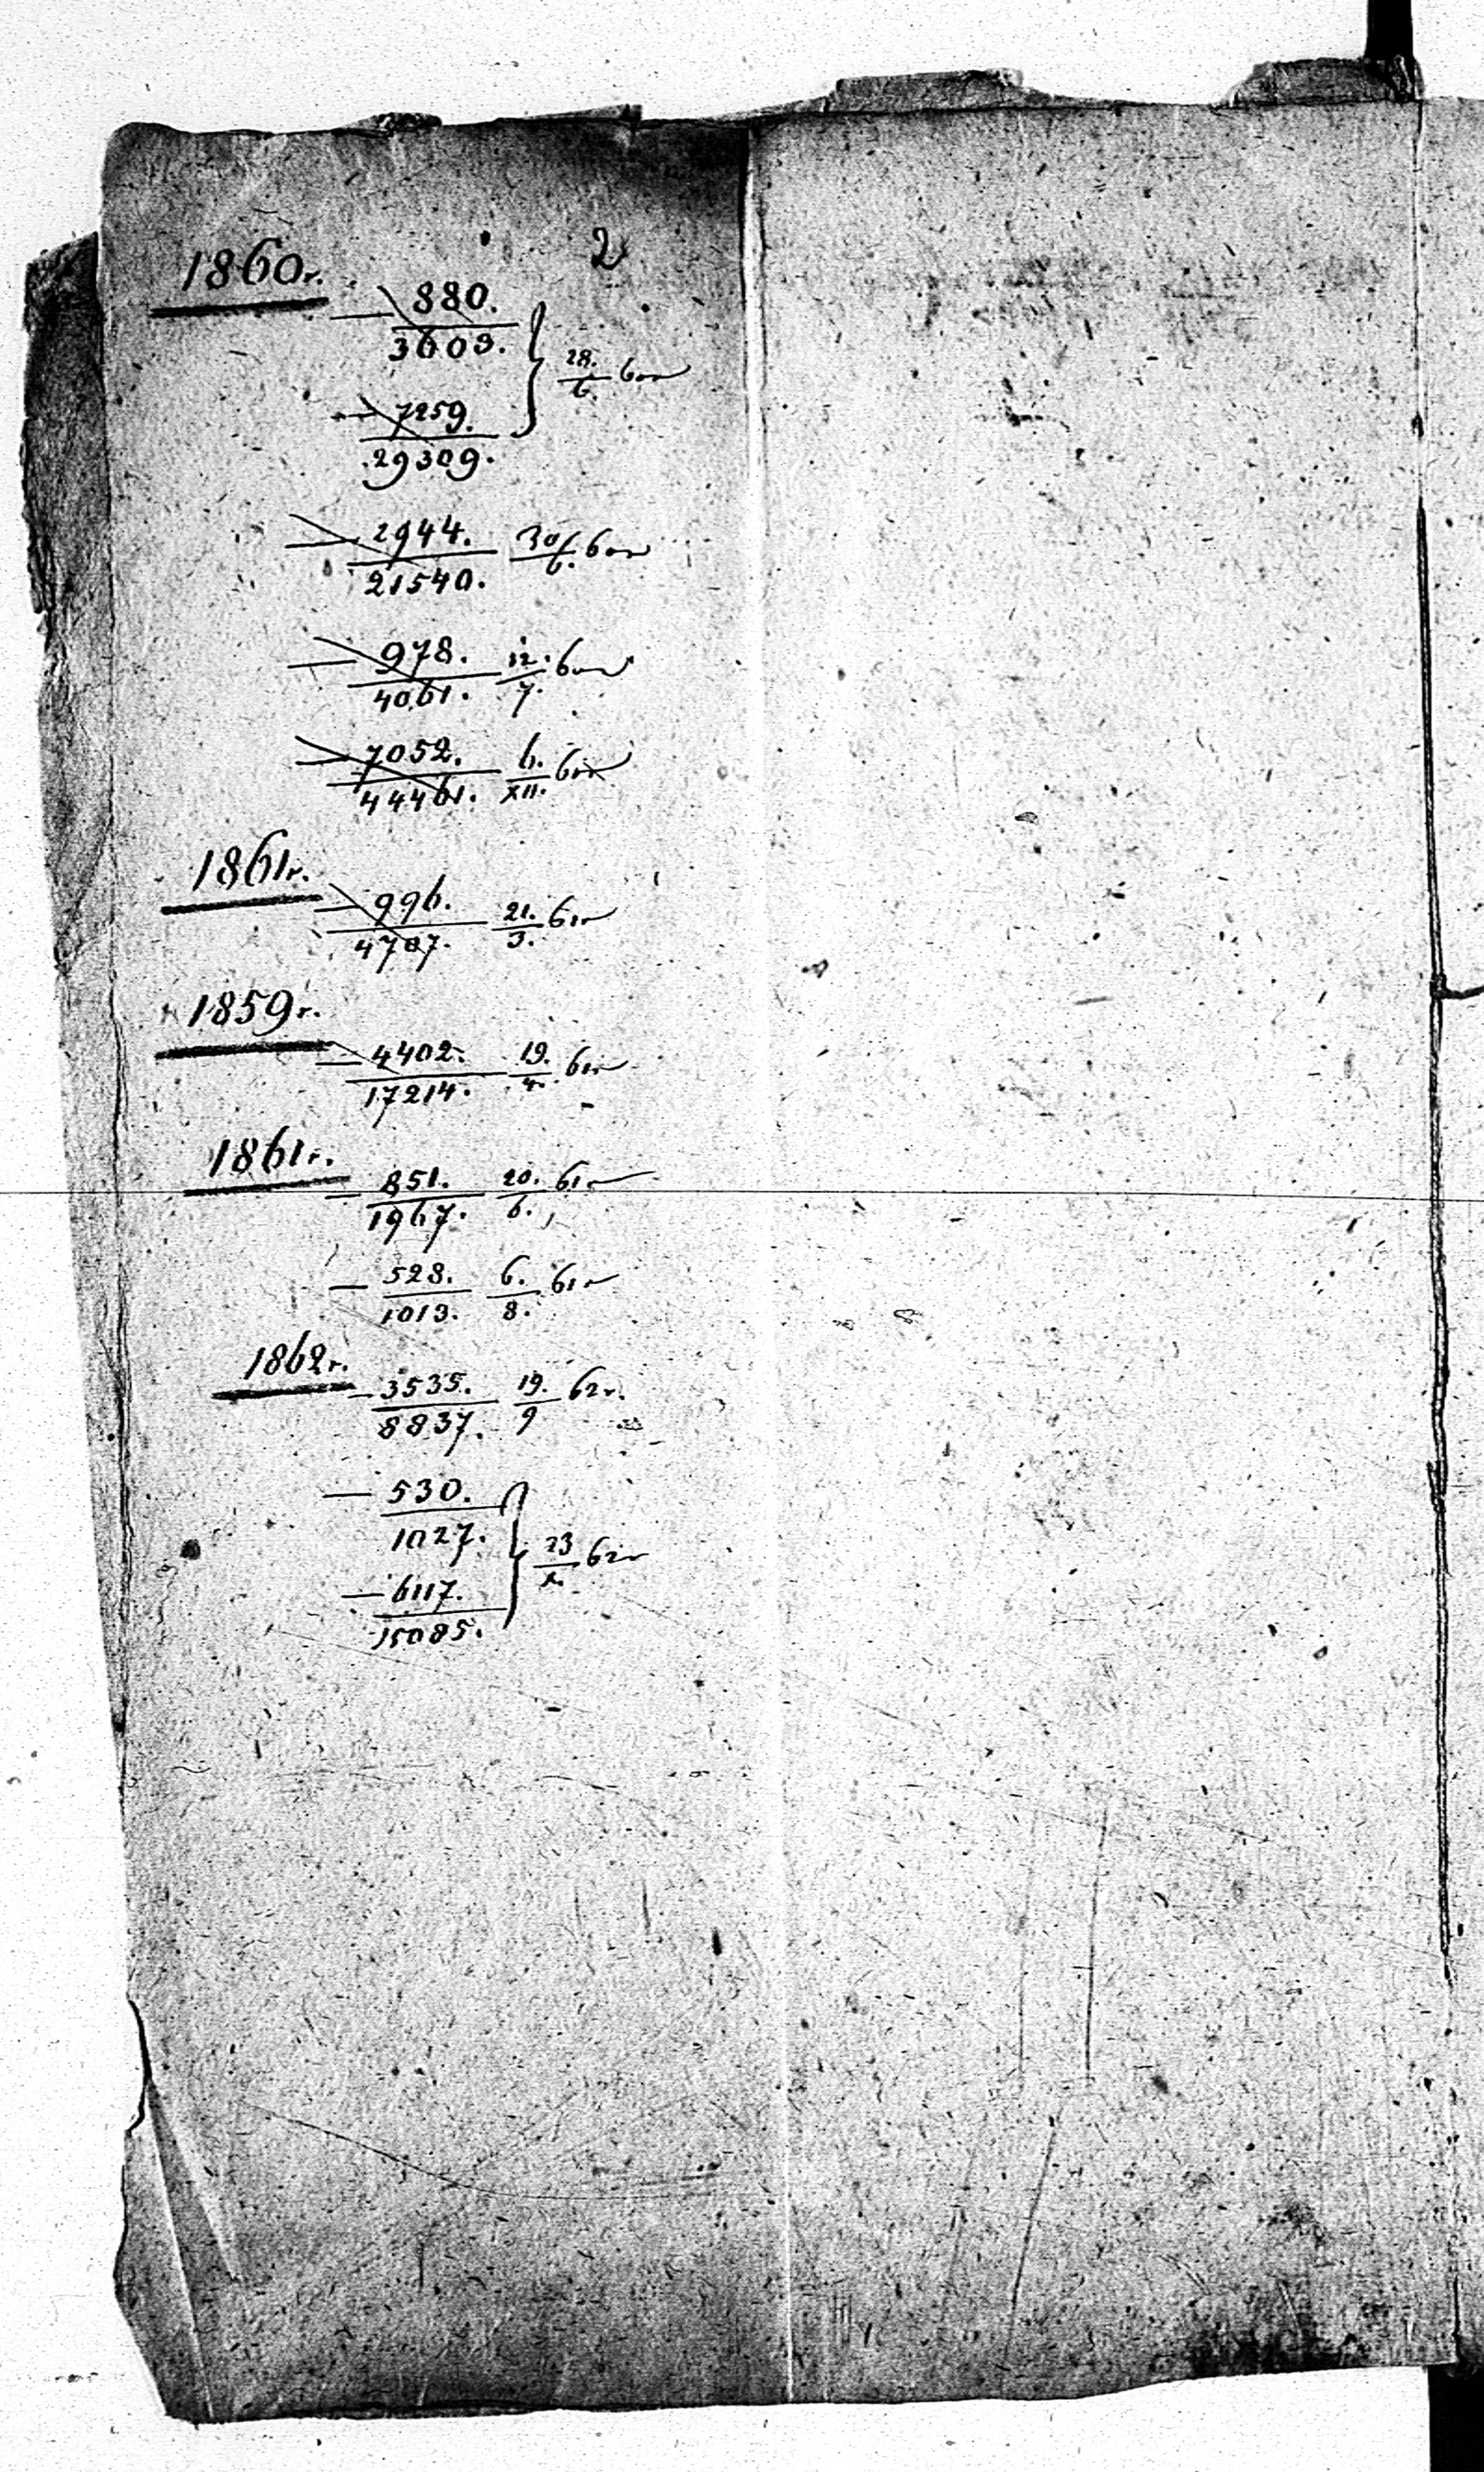 2
1860 г.
— 880. / 3603.
— 7259. / 29309. } 28./6. 60 г.
— 2944. / 21540. 30/6. 60 г.
— 978. / 4061. 12./7. 60 г.
— 7052. / 44461. 6./XII. 60 г.
1861 г.
— 996. / 4707. 21./3. 61 г.
1859 г.
— 4402. / 17214. 19./4. 61 г.
1861 г.
— 851. / 1967. 20./6. 61 г.
— 528. / 1013. 6./8. 61 г.
1862 г.
— 3535. / 8837. 19./9 62 г.
— 530. / 1027.
— 6117. / 15085. } 23/X. 62 г.